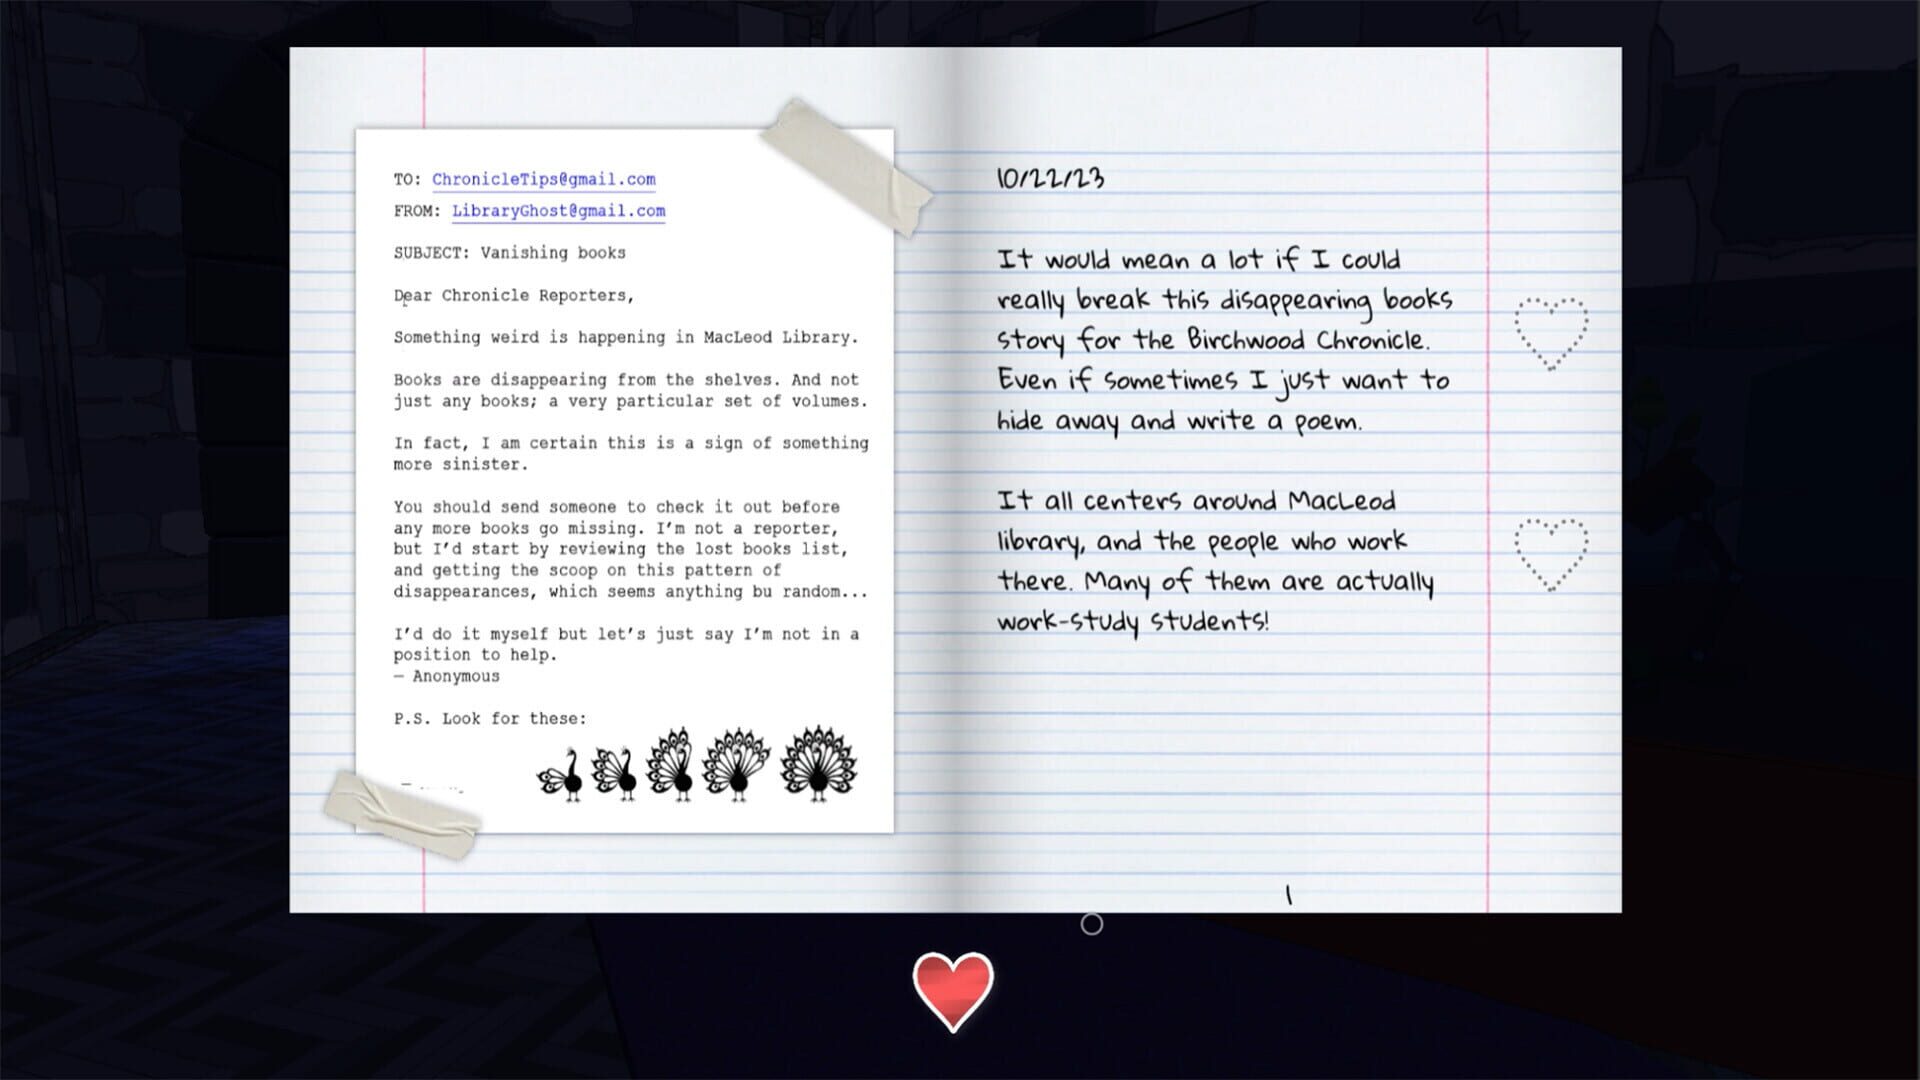 TO: ChronicleTips@gmail.com
FROM: LibraryGhost@gmail.com
SUBJECT: Vanishing books
Dear Chronicle Reporters,
Something weird is happening in MacLeod Library.
Books are disappearing from the shelves. And not
just any books; a very particular set of volumes.
In fact, I am certain this is a sign of something
more sinister.
You should send someone to check it out before
any more books go missing. I'm not a reporter,
but I'd start by reviewing the lost books list,
and getting the scoop on this pattern of
disappearances, which seems anything bu random...
I'd do it myself but let's just say I'm not in a
position to help.
— Anonymous
P.S. Look for these:
10/22/23
It would mean a lot if I could
really break this disappearing books
story for the Birchwood Chronicle.
Even if sometimes I just want to
hide away and write a poem.
It all centers around MacLeod
library, and the people who work
there. Many of them are actually
work-study students!
1